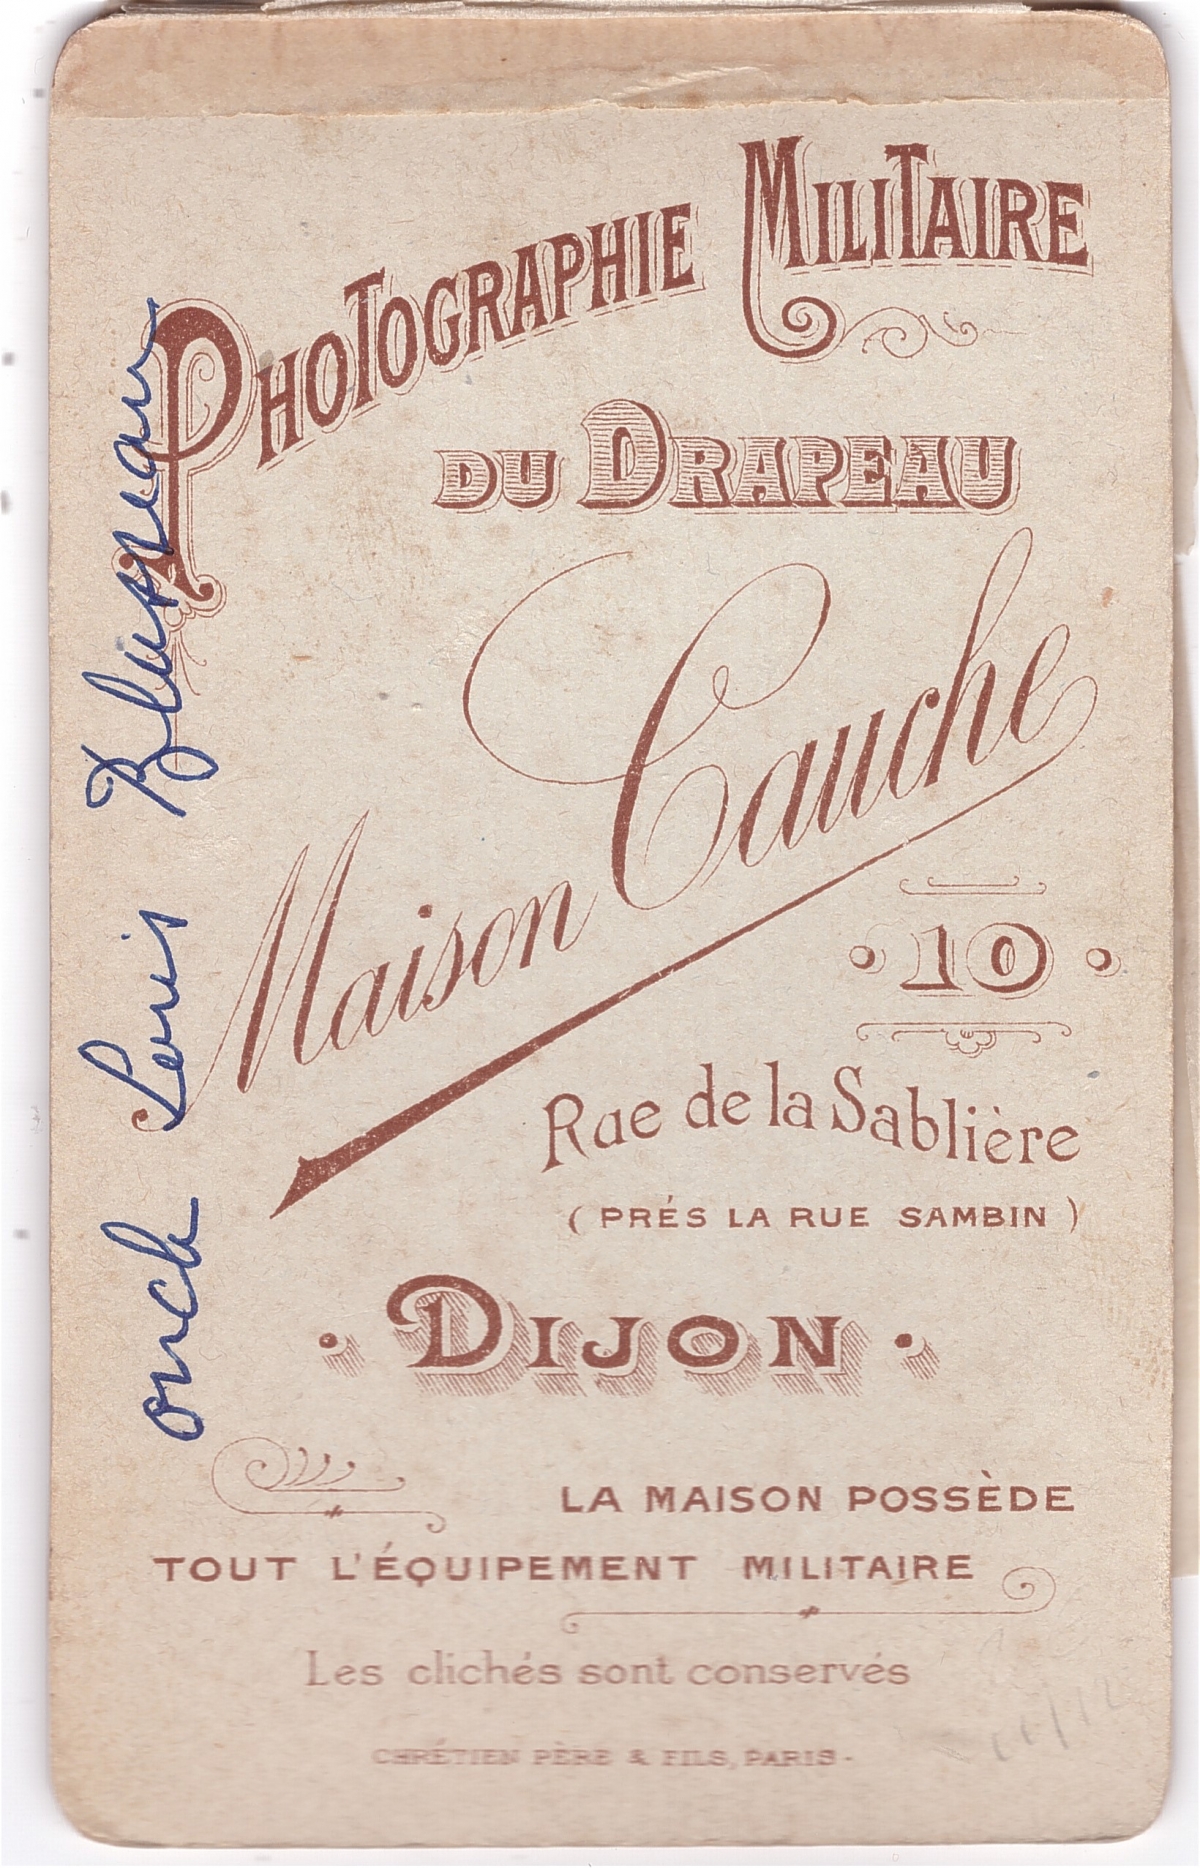 PHOTOGRAPHIE MILITAIRE
DU DRAPEAU
Maison Cauche
10
Rue de la Sablière
(PRÉS LA RUE SAMBIN)
DIJON
LA MAISON POSSÈDE
TOUT L'ÉQUIPEMENT MILITAIRE
Les clichés sont conservés
CHRÉTIEN PÈRE & FILS, PARIS.
Louis